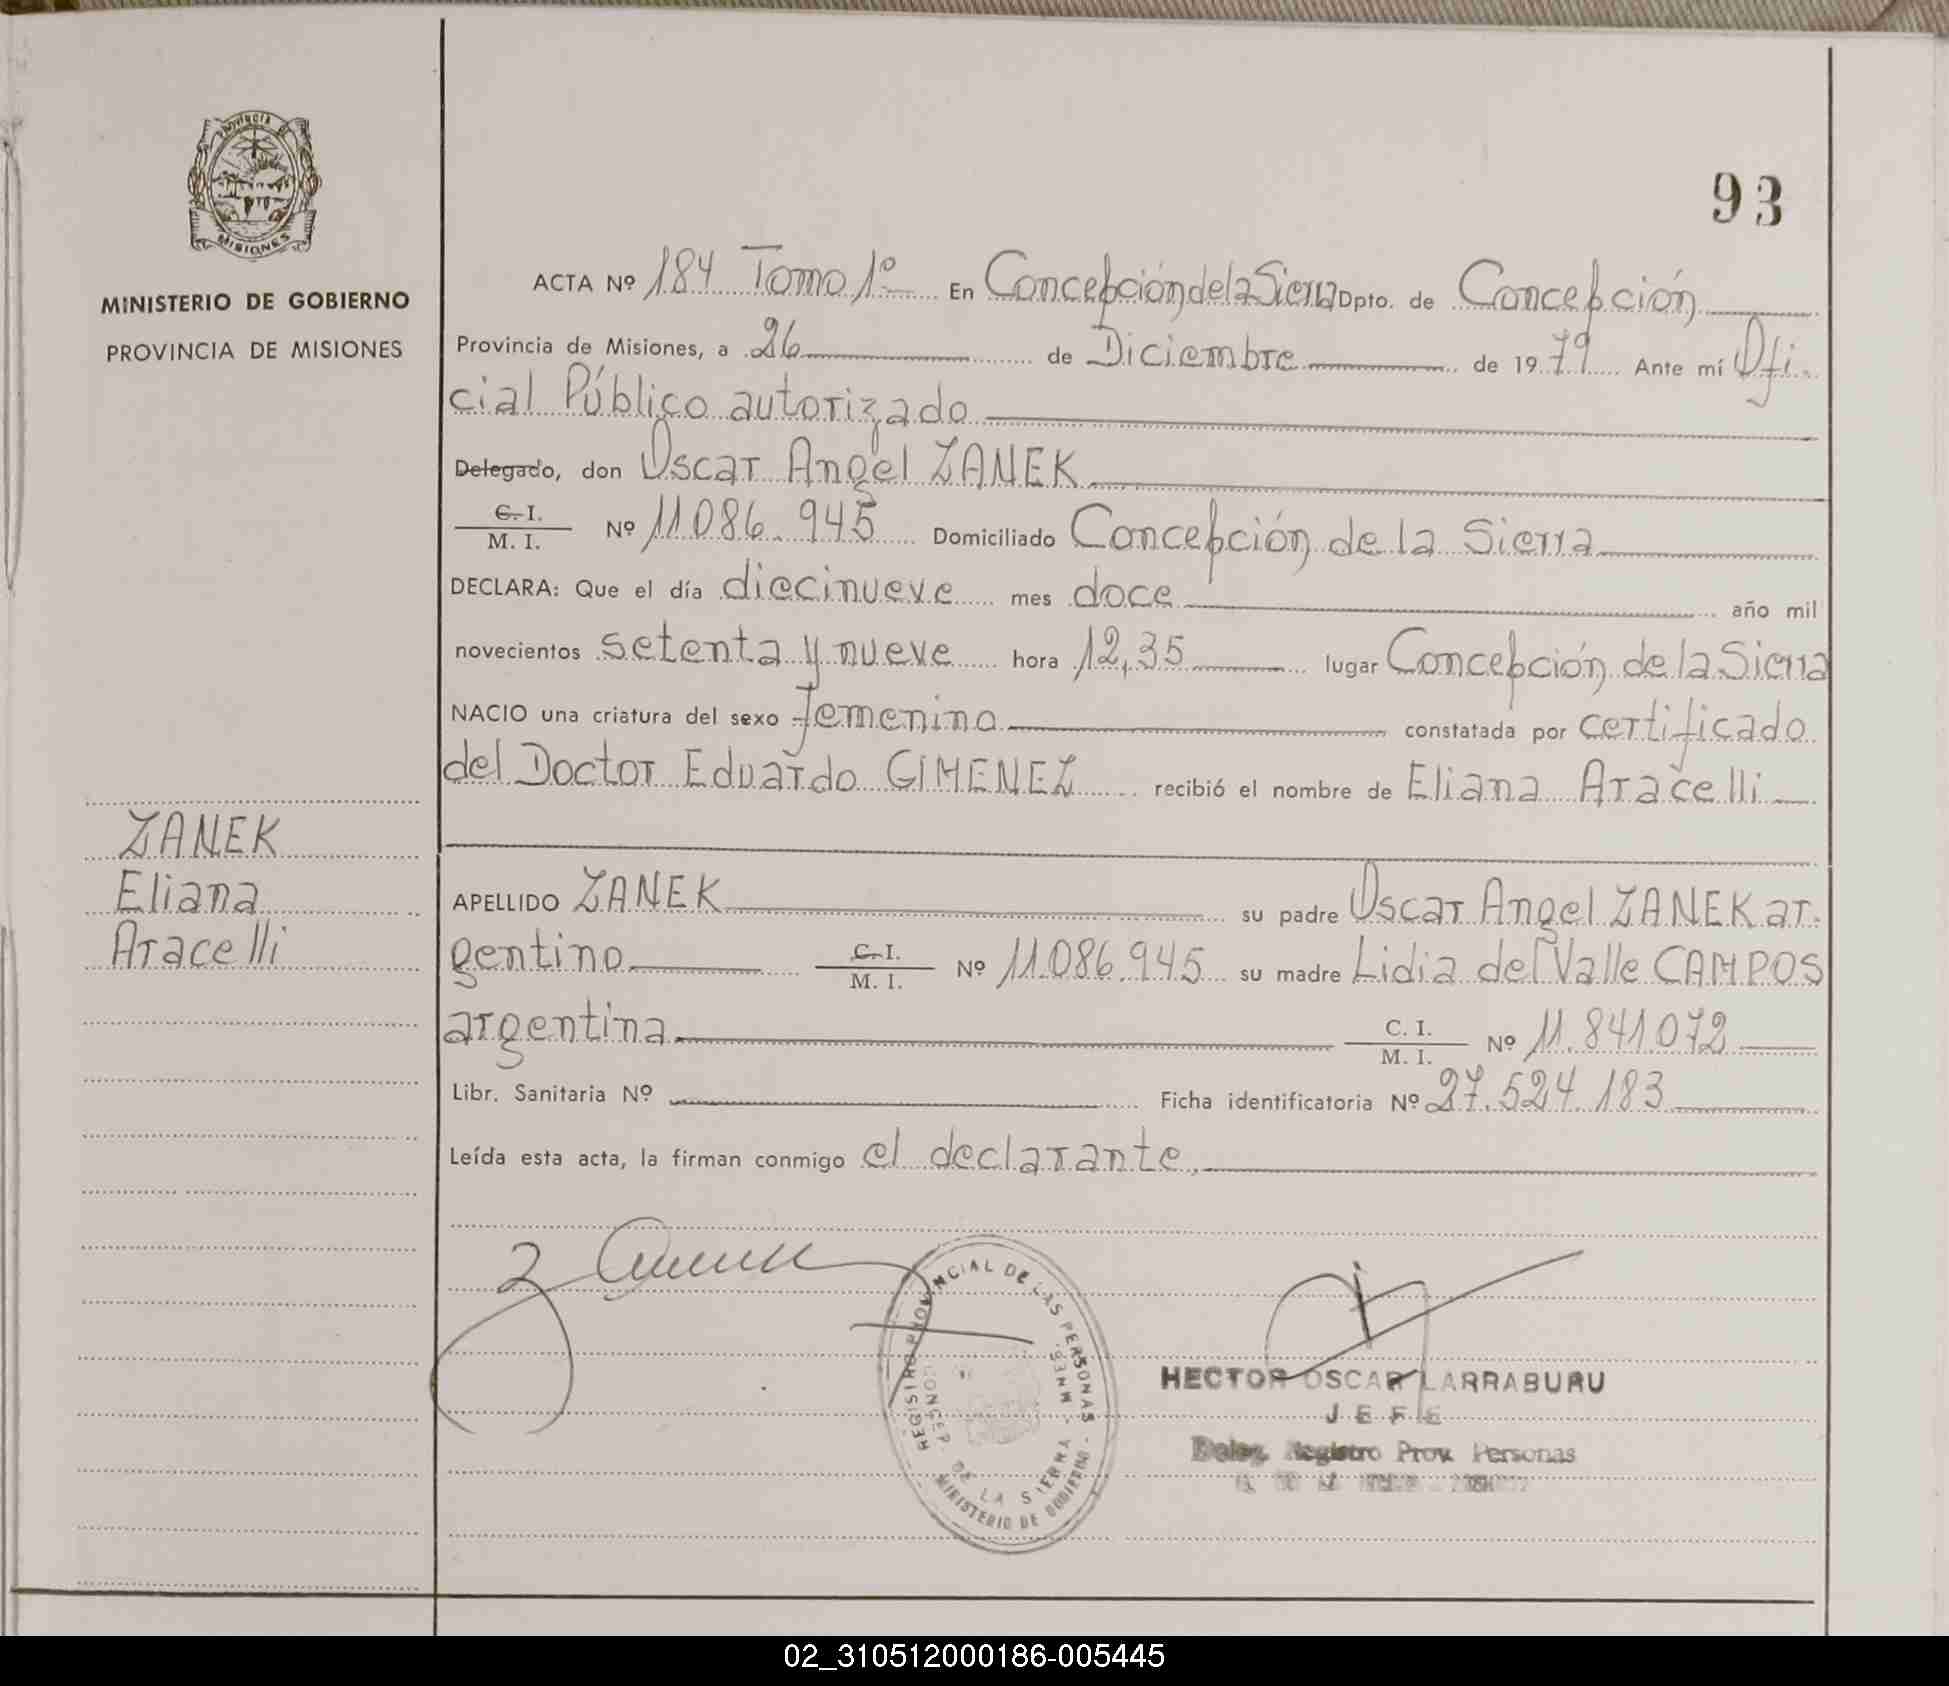 PROVINCIA DE
MISIONES
MINISTERIO DE GOBIERNO
PROVINCIA DE MISIONES
93
ACTA Nº 184 Tomo 1º En Concepción de la Sierra Dpto. de Concepción
Provincia de Misiones, a 26 de Diciembre de 1979 Ante mí Ofi-
cial Público autorizado
Delegado, don Oscar Angel ZANEK
C. I.
M. I. Nº 11.086.945 Domiciliado Concepción de la Sierra
DECLARA: Que el día diecinueve mes doce año mil
novecientos setenta y nueve hora 12,35 lugar Concepción de la Sierra
NACIO una criatura del sexo femenino constatada por certificado
del Doctor Eduardo GIMENEZ recibió el nombre de Eliana Aracelli
ZANEK
Eliana
Aracelli
APELLIDO ZANEK su padre Oscar Angel ZANEK ar-
gentino C. I. M. I. Nº 11.086.945 su madre Lidia del Valle CAMPOS
argentina C. I. M. I. Nº 11.841.072
Libr. Sanitaria Nº Ficha identificatoria Nº 27.524.183
Leída esta acta, la firman conmigo el declarante,
REGISTRO PROVINCIAL DE LAS PERSONAS
CONCEP. DE LA SIERRA - MNES.
MINISTERIO DE GOBIERNO
HECTOR OSCAR LARRABURU
JEFE
Deleg. Registro Prov. Personas
02_310512000186-005445